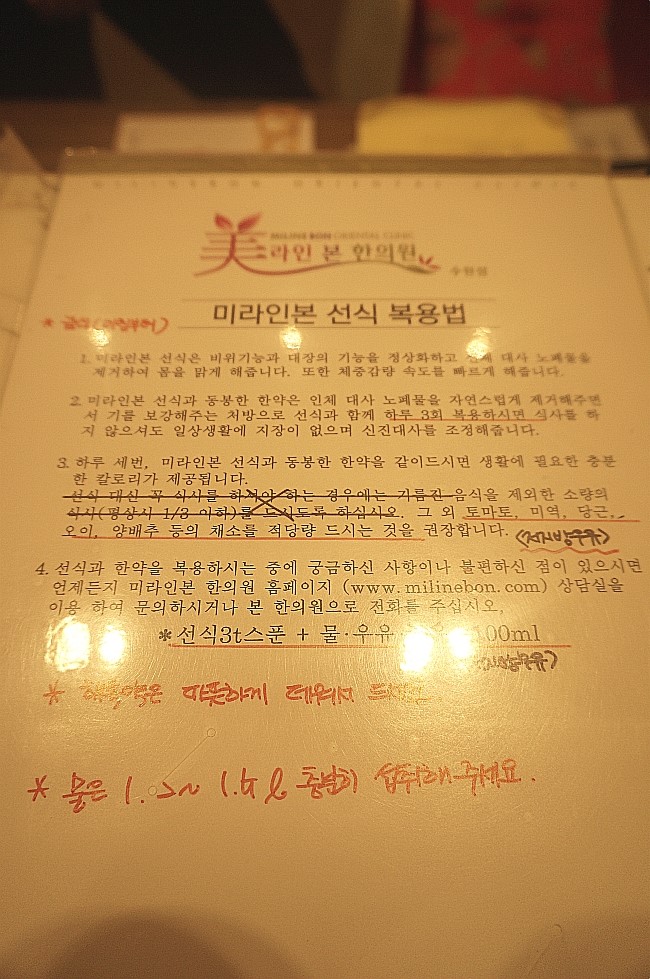 MILINE BON ORIENTAL CLINIC
美라인 본 한의원
수원점
미라인본 선식 복용법
1. 미라인본 선식은 비위기능과 대장의 기능을 정상화하고 대사 노폐물을
제거하여 몸을 맑게 해줍니다. 또한 체중감량 속도를 빠르게 해줍니다.
2. 미라인본 선식과 동봉한 한약은 인체 대사 노폐물을 자연스럽게 제거해주면
서 기를 보강해주는 처방으로 선식과 함께 하루 3회 복용하시면 식사를 하
지 않으셔도 일상생활에 지장이 없으며 신진대사를 조정해줍니다.
3. 하루 세번, 미라인본 선식과 동봉한 한약을 같이드시면 생활에 필요한 충분
한 칼로리가 제공됩니다.
선식 대신 꼭 식사를 하셔야 하는 경우에는 기름진 음식을 제외한 소량의
식사(평상시 1/3 이하)를 드시도록 하십시오. 그 외 토마토, 미역, 당근,
오이, 양배추 등의 채소를 적당량 드시는 것을 권장합니다.
(저지방우유)
4. 선식과 한약을 복용하시는 중에 궁금하신 사항이나 불편하신 점이 있으시면
언제든지 미라인본 한의원 홈페이지 (www.milinebon.com) 상담실을
이용 하여 문의하시거나 본 한의원으로 전화를 주십시오,
*선식3t스푼 + 물·우유 00ml
* 따뜻하게 데워서
* 물은 1. ~ 1.5ℓ 충분히 섭취해주세요.